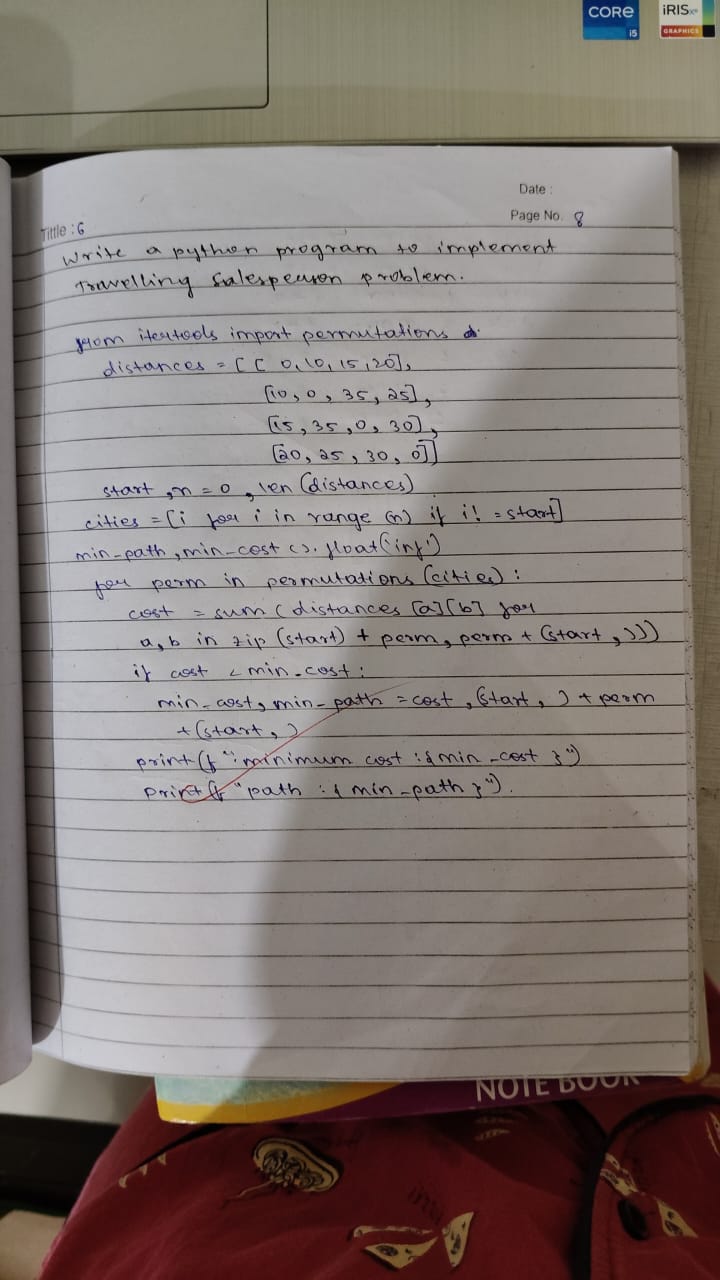 CORE
i5
iRIS xe
GRAPHICS
Date :
Page No. 8
Tittle : 6
Write a python program to implement
Travelling Salesperson problem.
from itertools import permutations
distances = [[ 0, 10, 15, 20],
[10, 0, 35, 25],
[15, 35, 0, 30],
[20, 25, 30, 0]]
start, n = 0, len (distances)
cities = [i for i in range (n) if i! = start]
min-path, min-cost (). float('inf')
for perm in permutations (cities) :
cost = sum ( distances [a][b] for
a, b in zip (start) + perm, perm + (start, )))
if cost < min-cost :
min-cost, min-path = cost, (start, ) + perm
+ (start, )
print (f ": minimum cost : { min-cost }")
print (f "path : { min-path }").
NOTE BOOK